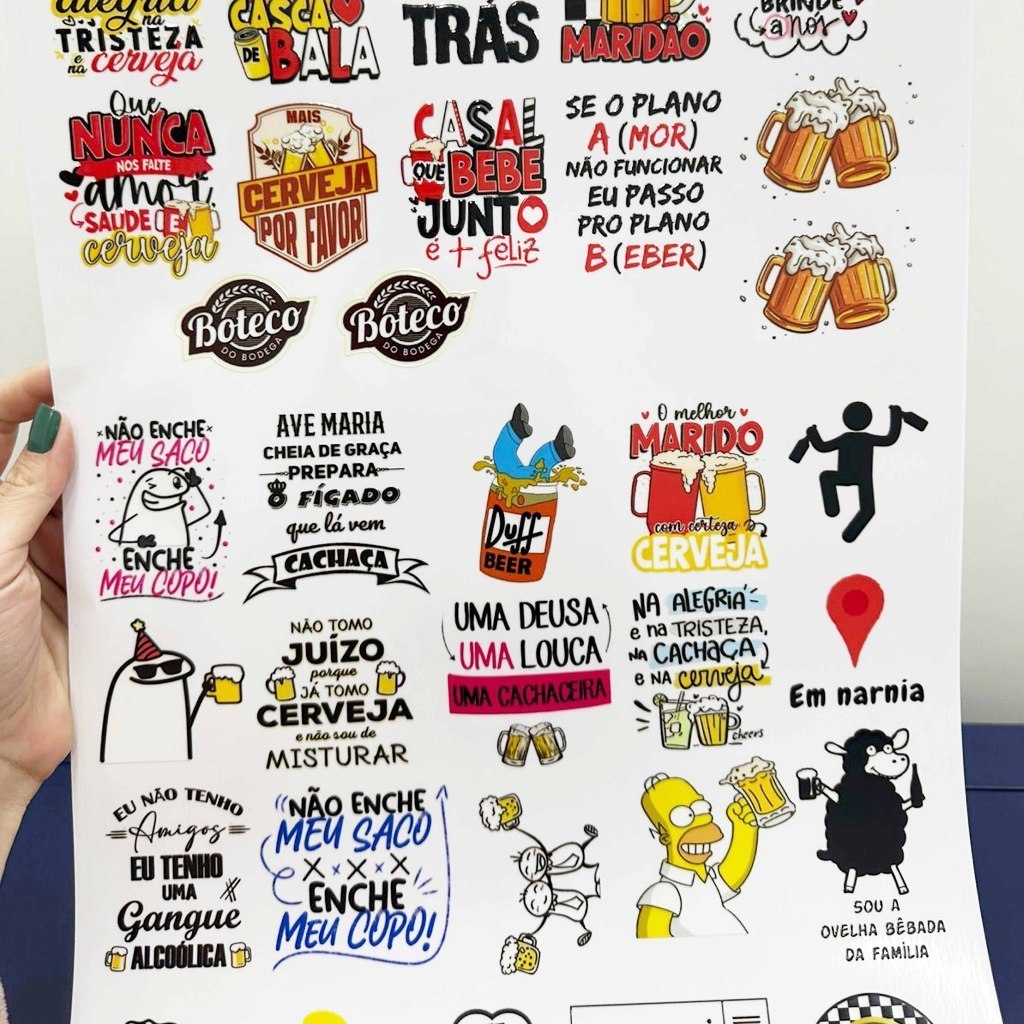 alegria
na
TRISTEZA
e na cerveja
CASCA
DE BALA
TRÁS
MARIDÃO
BRINDE
anos
Que
NUNCA
NOS FALTE
amor,
SAÚDE E
cerveja
MAIS
CERVEJA
POR FAVOR
CASAL
QUE BEBE
JUNTO
é + feliz
SE O PLANO
A (MOR)
NÃO FUNCIONAR
EU PASSO
PRO PLANO
B (EBER)
Boteco
DO BODEGA
Boteco
DO BODEGA
NÃO ENCHE
MEU SACO
ENCHE
MEU COPO!
AVE MARIA
CHEIA DE GRAÇA
PREPARA
O FÍGADO
que lá vem
CACHAÇA
Duff
BEER
O melhor
MARIDO
com certeza
CERVEJA
NÃO TOMO
JUÍZO
porque
JÁ TOMO
CERVEJA
e não sou de
MISTURAR
UMA DEUSA
UMA LOUCA
UMA CACHACEIRA
NA ALEGRIA
e na TRISTEZA,
NA CACHAÇA
e NA cerveja
cheers
Em narnia
EU NÃO TENHO
Amigos
EU TENHO
UMA
Gangue
ALCOÓLICA
NÃO ENCHE
MEU SACO
X X X X
ENCHE
MEU COPO!
SOU A
OVELHA BÊBADA
DA FAMÍLIA